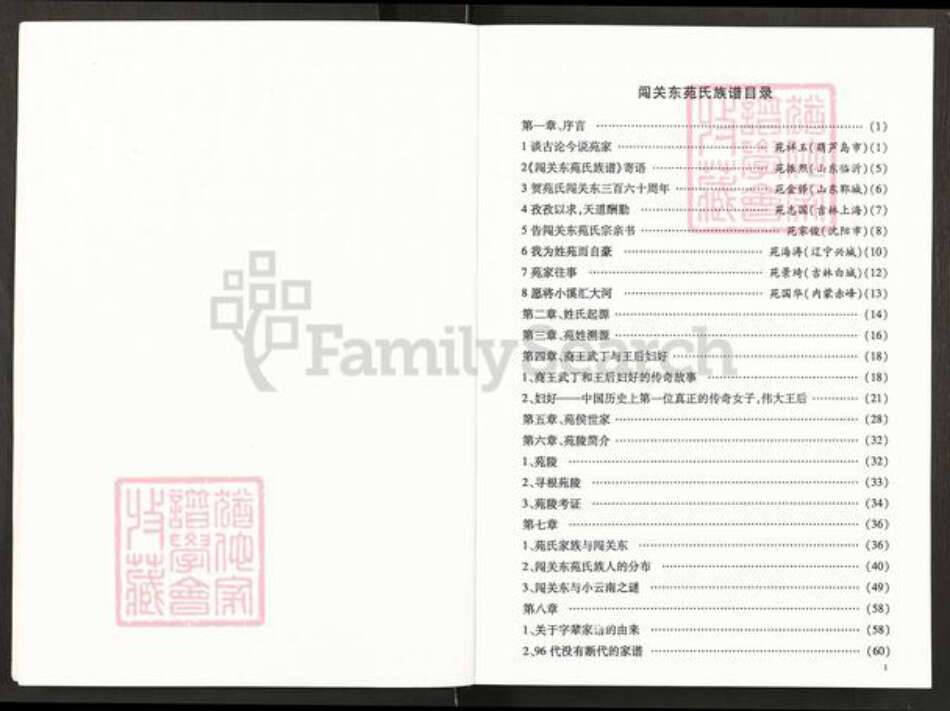 闯关东苑氏族谱目录
第一章、序言 (1)
1 谈古论今说苑家 苑祥玉(葫芦岛市)(1)
2《闯关东苑氏族谱》寄语 苑振熙(山东临沂)(5)
3 贺苑氏闯关东三百六十周年 苑金铎(山东郓城)(6)
4 孜孜以求,天道酬勤 苑志国(吉林上海)(7)
5 告闯关东苑氏宗亲书 苑家俊(沈阳市)(8)
6 我为姓苑而自豪 苑海涛(辽宁兴城)(10)
7 苑家往事 苑景琦(吉林白城)(12)
8 愿将小溪汇大河 苑国华(内蒙赤峰)(13)
第二章、姓氏起源 (14)
第三章、苑姓溯源 (16)
第四章、商王武丁与王后妇好 (18)
1、商王武丁和王后妇好的传奇故事 (18)
2、妇好——中国历史上第一位真正的传奇女子,伟大王后 (21)
第五章、苑侯世家 (28)
第六章、苑陵简介 (32)
1、苑陵 (32)
2、寻根苑陵 (33)
3、苑陵考证 (34)
第七章 (36)
1、苑氏家族与闯关东 (36)
2、闯关东苑氏族人的分布 (40)
3、闯关东与小云南之谜 (49)
第八章 (58)
1、关于字辈家谱的由来 (58)
2、96 代没有断代的家谱 (60)
1
FamilySearch
猶他家
譜學會
收藏
猶他家
譜學會
收藏